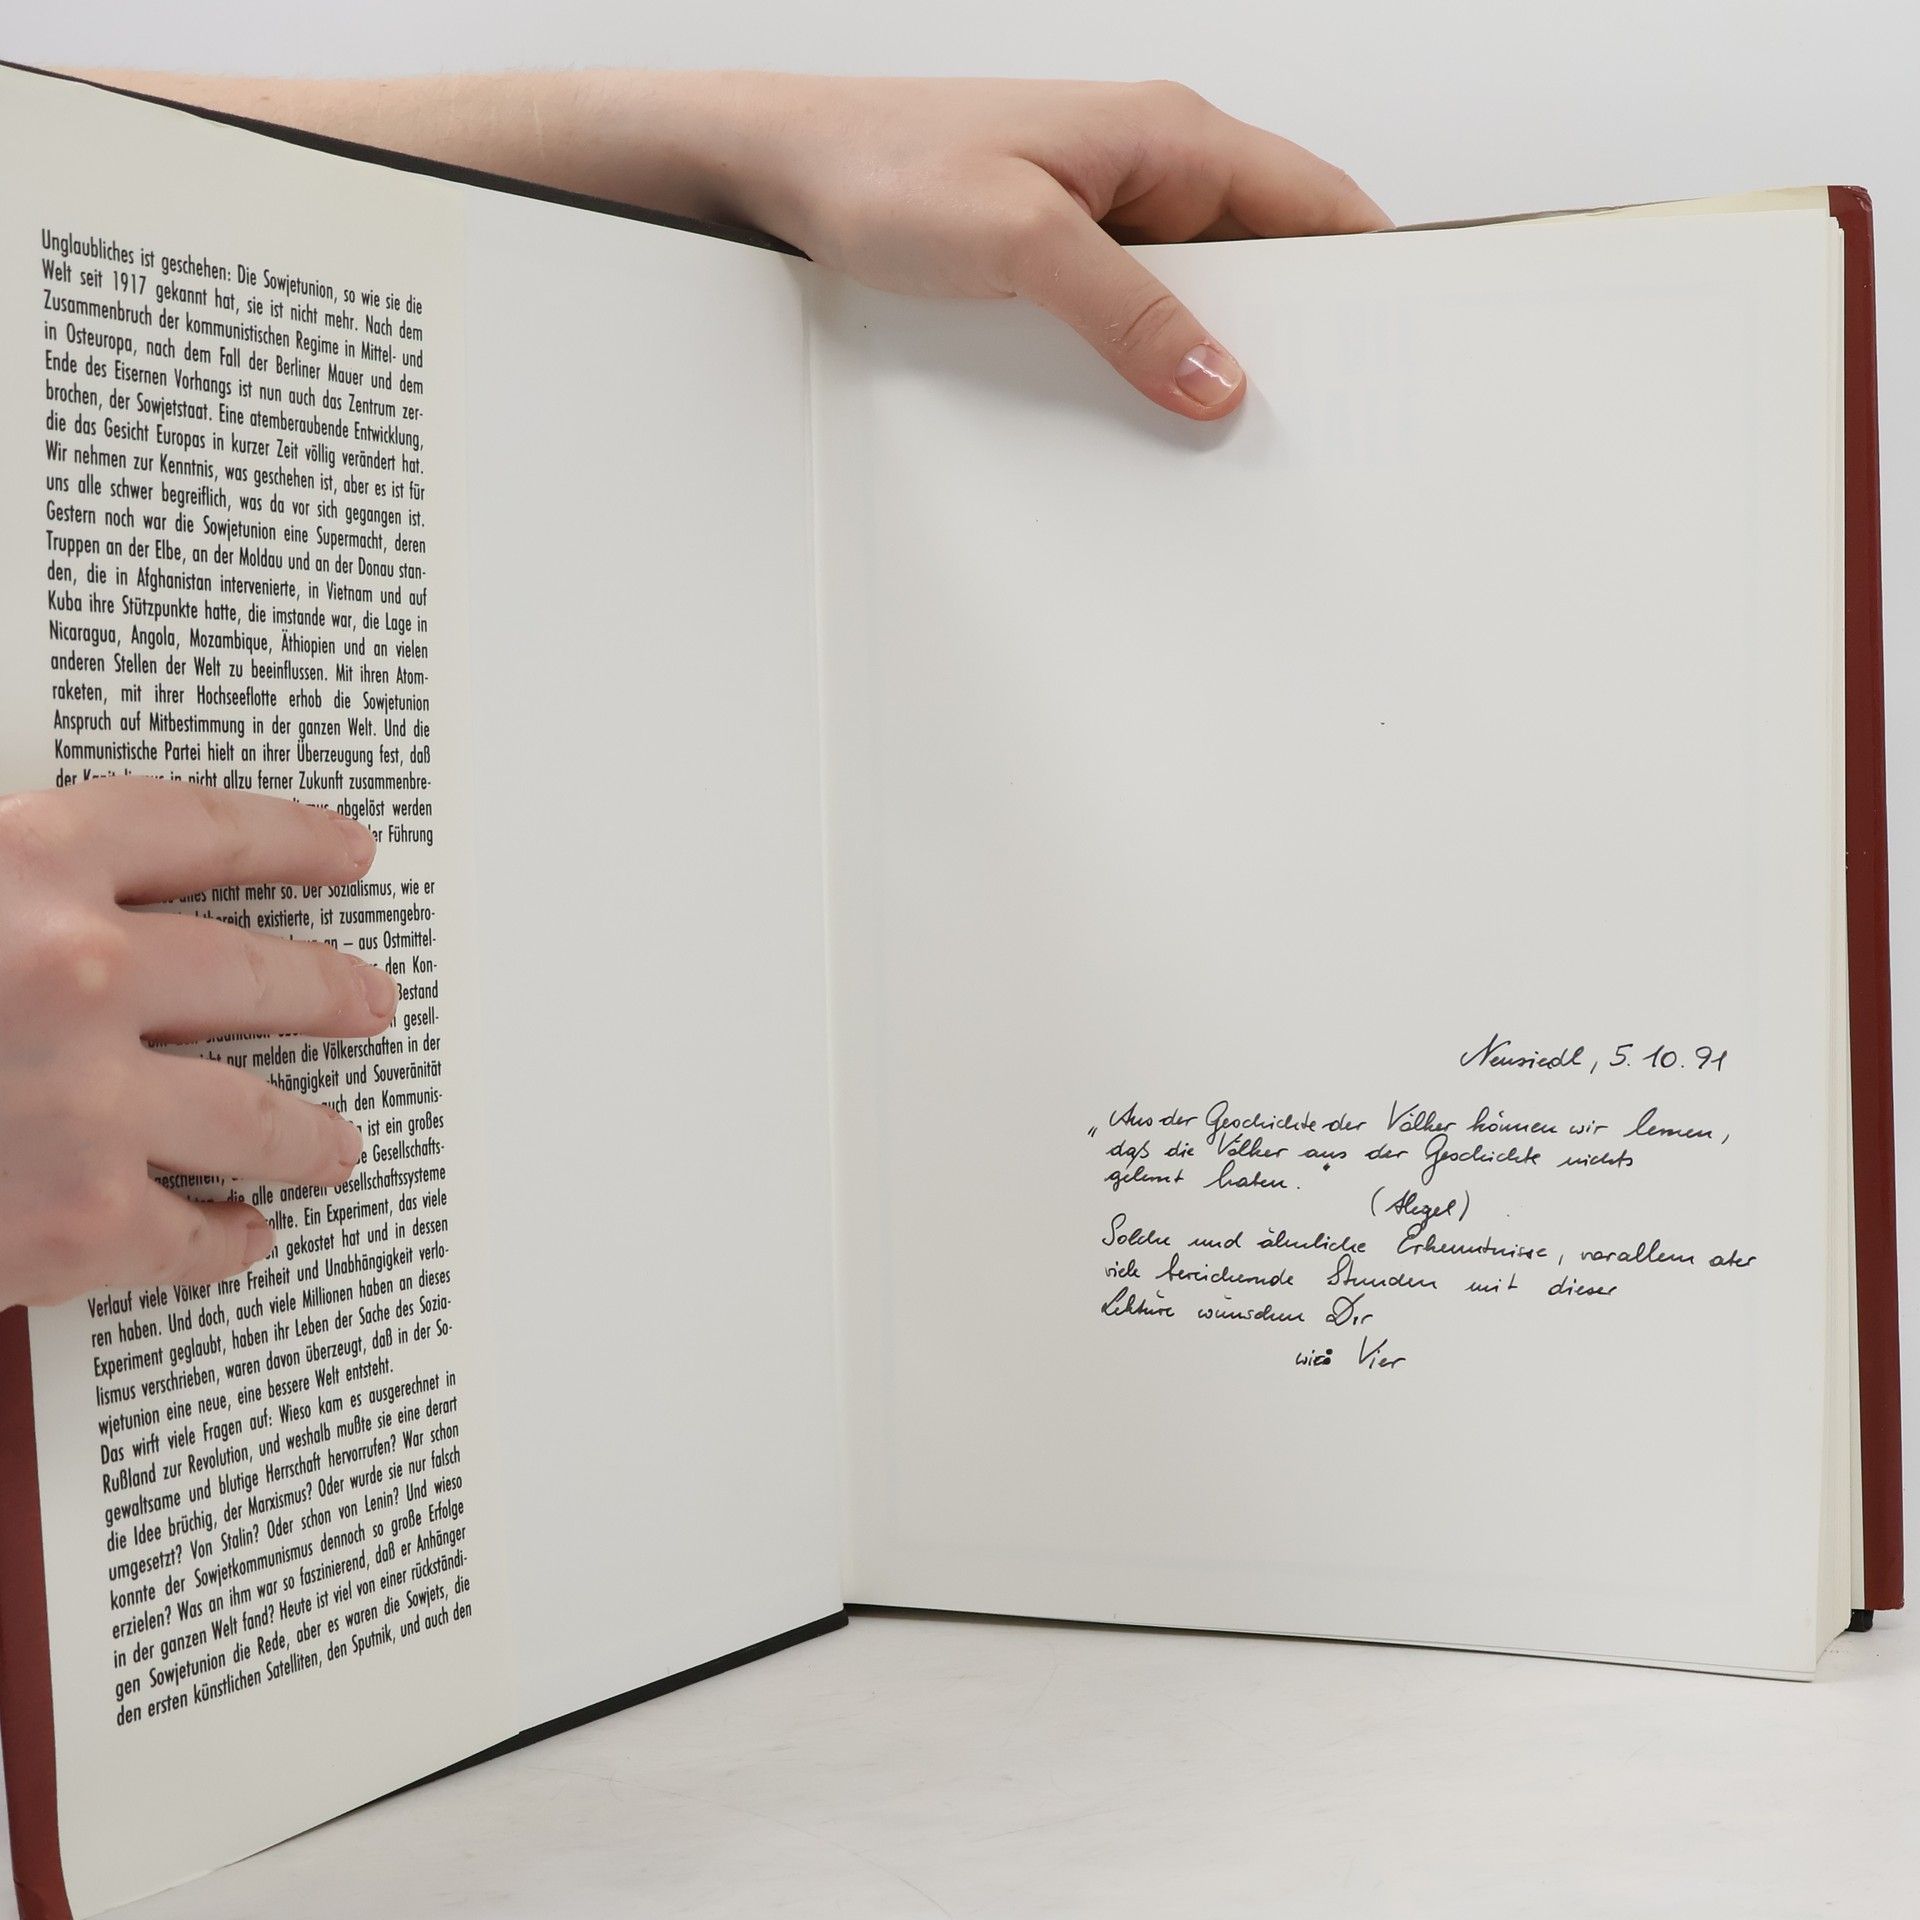 Unglaubliches ist geschehen: Die Sowjetunion, so wie sie die
Welt seit 1917 gekannt hat, sie ist nicht mehr. Nach dem
Zusammenbruch der kommunistischen Regime in Mittel- und
in Osteuropa, nach dem Fall der Berliner Mauer und dem
Ende des Eisernen Vorhangs ist nun auch das Zentrum zer-
brochen, der Sowjetstaat. Eine atemberaubende Entwicklung,
die das Gesicht Europas in kurzer Zeit völlig verändert hat.
Wir nehmen zur Kenntnis, was geschehen ist, aber es ist für
uns alle schwer begreiflich, was da vor sich gegangen ist.
Gestern noch war die Sowjetunion eine Supermacht, deren
Truppen an der Elbe, an der Moldau und an der Donau stan-
den, die in Afghanistan intervenierte, in Vietnam und auf
Kuba ihre Stützpunkte hatte, die imstande war, die Lage in
Nicaragua, Angola, Mozambique, Äthiopien und an vielen
anderen Stellen der Welt zu beeinflussen. Mit ihren Atom-
raketen, mit ihrer Hochseeflotte erhob die Sowjetunion
Anspruch auf Mitbestimmung in der ganzen Welt. Und die
Kommunistische Partei hielt an ihrer Überzeugung fest, daß
der in nicht allzu ferner Zukunft zusammenbre-
abgelöst werden
der Führung
nicht mehr so. Der Sozialismus, wie er
existierte, ist zusammengebro-
an – aus Ostmittel-
den Kon-
Bestand
gesell-
nur melden die Völkerschaften in der
und Souveränität
auch den Kommunis-
ist ein großes
Gesellschafts-
die alle anderen Gesellschaftssysteme
sollte. Ein Experiment, das viele
gekostet hat und in dessen
Verlauf viele Völker ihre Freiheit und Unabhängigkeit verlo-
ren haben. Und doch, auch viele Millionen haben an dieses
Experiment geglaubt, haben ihr Leben der Sache des Sozia-
lismus verschrieben, waren davon überzeugt, daß in der So-
wjetunion eine neue, eine bessere Welt entsteht.
Das wirft viele Fragen auf: Wieso kam es ausgerechnet in
Rußland zur Revolution, und weshalb mußte sie eine derart
gewaltsame und blutige Herrschaft hervorrufen? War schon
die Idee brüchig, der Marxismus? Oder wurde sie nur falsch
umgesetzt? Von Stalin? Oder schon von Lenin? Und wieso
konnte der Sowjetkommunismus dennoch so große Erfolge
erzielen? Was an ihm war so faszinierend, daß er Anhänger
in der ganzen Welt fand? Heute ist viel von einer rückständi-
gen Sowjetunion die Rede, aber es waren die Sowjets, die
den ersten künstlichen Satelliten, den Sputnik, und auch den
Neusiedl, 5. 10. 91
„Aus der Geschichte der Völker können wir lernen,
daß die Völker aus der Geschichte nichts
gelernt haben."
(Hegel)
Solche und ähnliche Erkenntnisse, vorallem aber
viele bereichernde Stunden mit dieser
Lektüre wünschen Dir
wir Vier